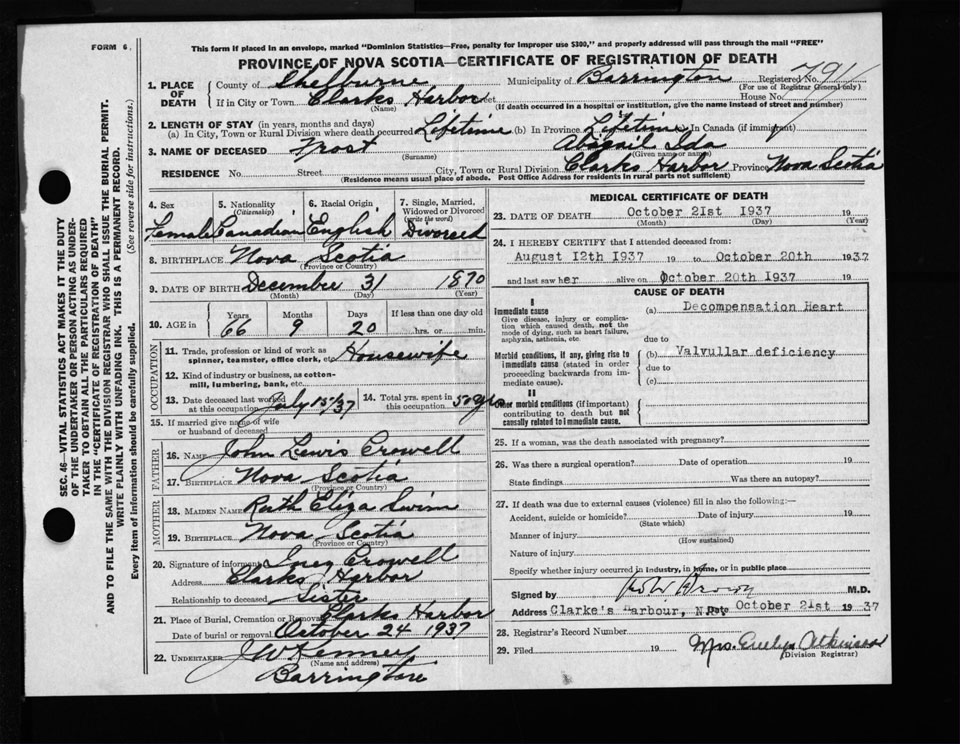 FORM 6.
This form if placed in an envelope, marked "Dominion Statistics—Free, penalty for improper use $300," and properly addressed will pass through the mail "FREE"
PROVINCE OF NOVA SCOTIA—CERTIFICATE OF REGISTRATION OF DEATH
1. PLACE OF DEATH County of Shelburne Municipality of Barrington Registered No. 791 (For use of Registrar General only)
If in City or Town Clarks Harbor (Name) House No.
(If death occurred in a hospital or institution, give the name instead of street and number)
2. LENGTH OF STAY (in years, months and days)
(a) In City, Town or Rural Division where death occurred Lifetime (b) In Province Lifetime In Canada (if immigrant)
3. NAME OF DECEASED Frost (Surname) Abigail Ida (Given name or names)
RESIDENCE No. Street City, Town or Rural Division Clarks Harbor Province Nova Scotia
(Residence means usual place of abode. Post Office Address for residents in rural parts not sufficient)
4. Sex Female
5. Nationality (Citizenship) Canadian
6. Racial Origin English
7. Single, Married, Widowed or Divorced (write the word) Divorced
8. BIRTHPLACE Nova Scotia
(Province or Country)
9. DATE OF BIRTH December 31 1870
(Month) (Day) (Year)
10. AGE in Years 66 Months 9 Days 20 If less than one day old hrs. or min.
OCCUPATION
11. Trade, profession or kind of work as spinner, teamster, office clerk, etc. Housewife
12. Kind of industry or business, as cotton-mill, lumbering, bank, etc.
13. Date deceased last worked at this occupation July 15/37
14. Total yrs. spent in this occupation 50 yrs
15. If married give name of wife or husband of deceased
FATHER
16. Name John Lewis Crowell
17. Birthplace Nova Scotia
(Province or Country)
MOTHER
18. Maiden Name Ruth Eliza Swim
19. Birthplace Nova Scotia
(Province or Country)
20. Signature of informant Inez Crowell
Address Clarks Harbor
Relationship to deceased Sister
21. Place of Burial, Cremation or Removal Clarks Harbor
Date of burial or removal October 24 1937
22. UNDERTAKER J W Kenney
(Name and address)
Barrington
MEDICAL CERTIFICATE OF DEATH
23. DATE OF DEATH October 21st 1937 19
(Month) (Day) (Year)
24. I HEREBY CERTIFY that I attended deceased from:
August 12th 1937 19 to October 20th 1937
and last saw her alive on October 20th 1937 19
CAUSE OF DEATH
I
Immediate cause
Give disease, injury or complication which caused death, not the mode of dying, such as heart failure, asphyxia, asthenia, etc.
(a) Decompensation Heart
due to
Morbid conditions, if any, giving rise to immediate cause (stated in order proceeding backwards from immediate cause).
(b) Valvullar deficiency
due to
(c)
II
Other morbid conditions (if important) contributing to death but not causally related to immediate cause.
25. If a woman, was the death associated with pregnancy?
26. Was there a surgical operation? Date of operation 19
State findings Was there an autopsy?
27. If death was due to external causes (violence) fill in also the following:—
Accident, suicide or homicide? Date of injury 19
(State which)
Manner of injury
(How sustained)
Nature of injury
Specify whether injury occurred in industry, in home, or in public place
Signed by M.D.
Address Clarke's Harbour, N.S. Date October 21st 1937
28. Registrar's Record Number
29. Filed 19 Mrs. Evelyn Atkinson
(Division Registrar)
SEC. 46—VITAL STATISTICS ACT MAKES IT THE DUTY
OF THE UNDERTAKER OR PERSON ACTING AS UNDER-
TAKER TO OBTAIN ALL THE PARTICULARS REQUIRED
IN THE "CERTIFICATE OF REGISTRATION OF DEATH"
AND TO FILE THE SAME WITH THE DIVISION REGISTRAR WHO SHALL ISSUE THE BURIAL PERMIT.
WRITE PLAINLY WITH UNFADING INK. THIS IS A PERMANENT RECORD.
Every item of information should be carefully supplied. (See reverse side for instructions.)